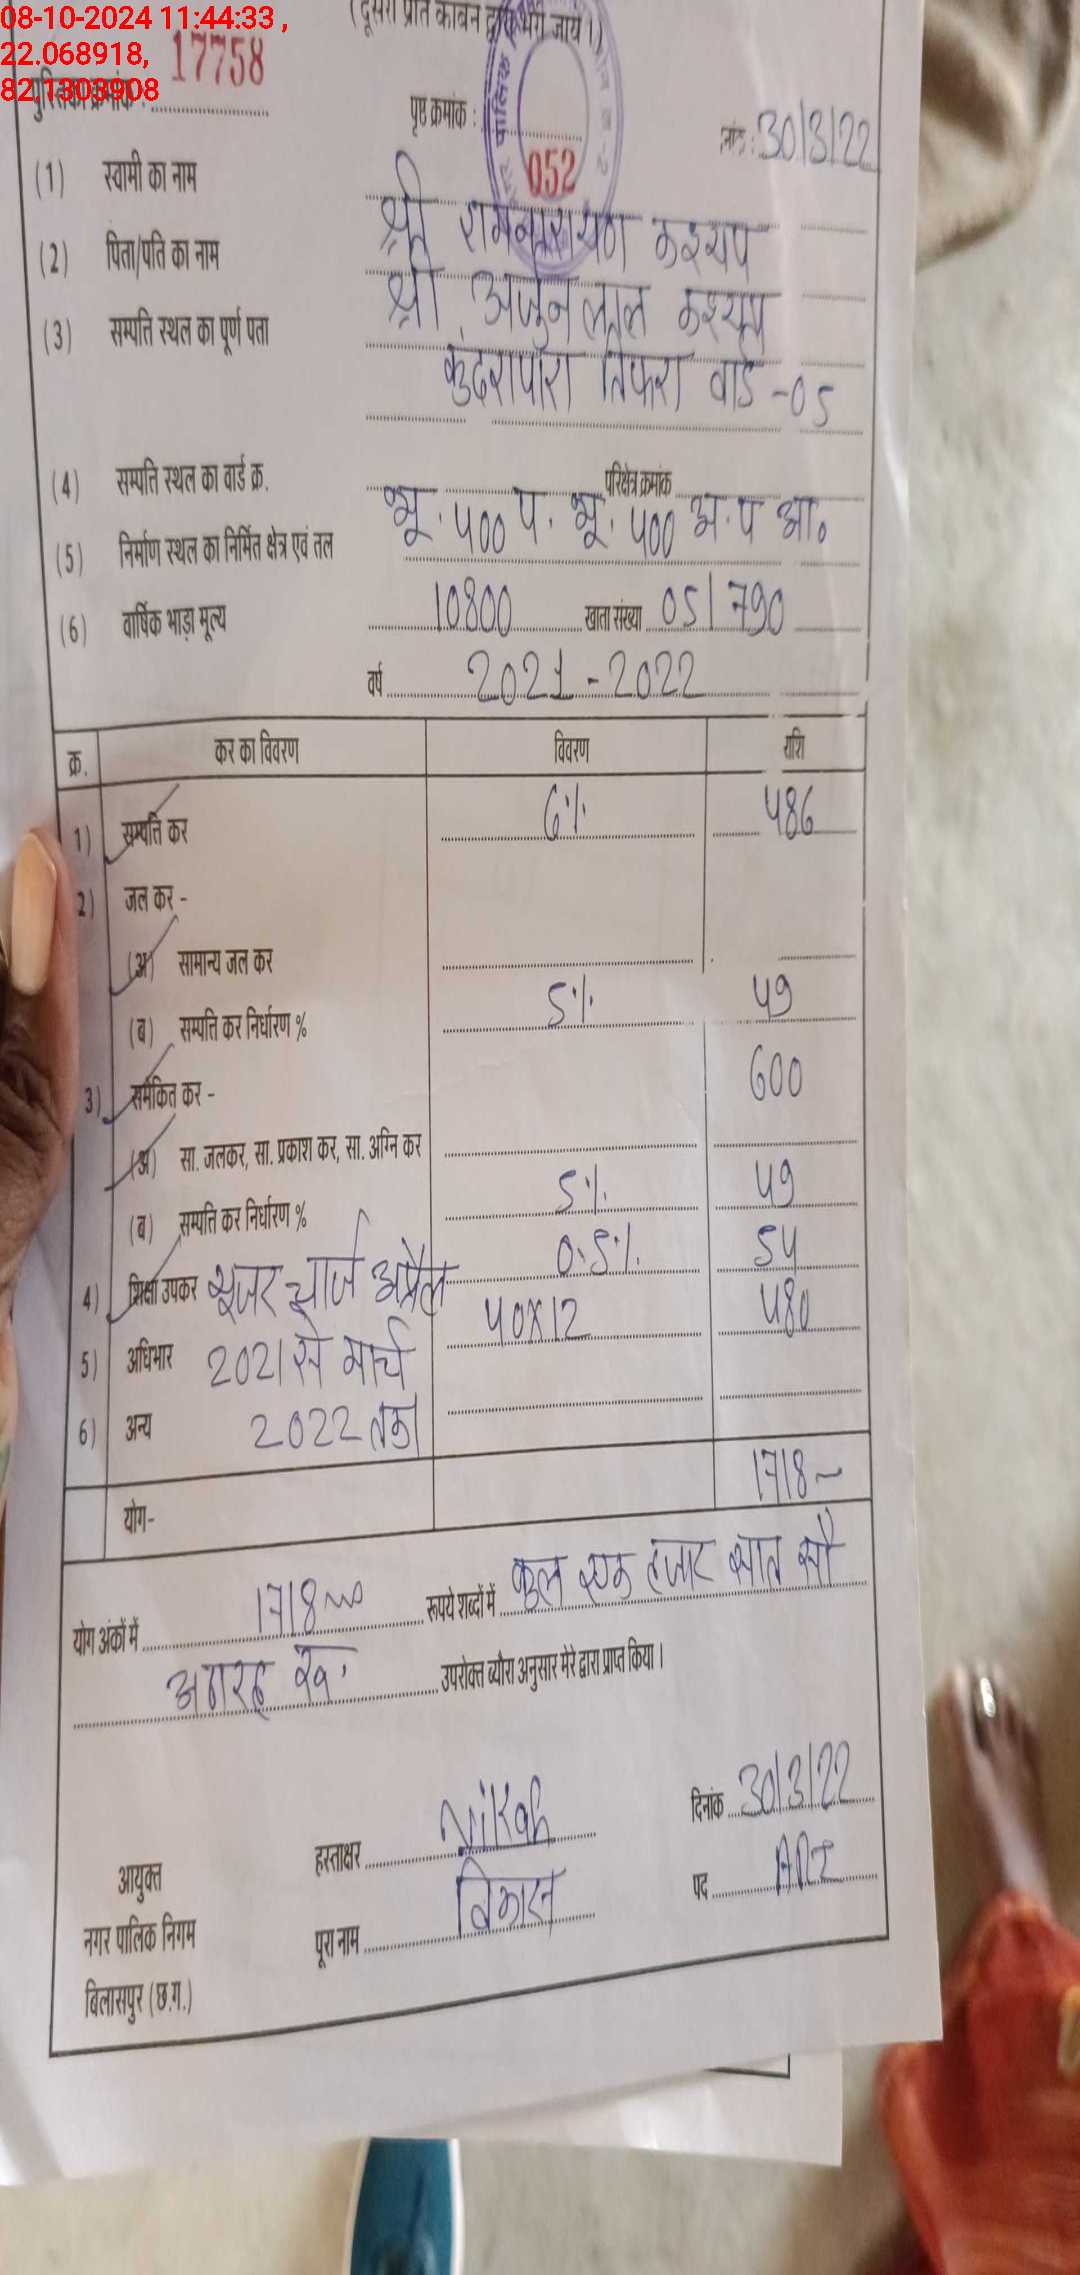 08-10-2024 11:44:33 ,
22.068918,
82.1303908
(दूसरी प्रति कार्बन द्वारा भरी जाये।)
पुस्तिका क्रमांक : 17758
पृष्ठ क्रमांक : 052
30/3/22
(1) स्वामी का नाम श्री रामनारायण कश्यप
(2) पिता/पति का नाम श्री अर्जुन लाल कश्यप
(3) सम्पत्ति स्थल का पूर्ण पता कुंदरापारा तिफरा वार्ड -05
(4) सम्पत्ति स्थल का वार्ड क्र. परिक्षेत्र क्रमांक
(5) निर्माण स्थल का निर्मित क्षेत्र एवं तल भू. 400 प. भू. 400 अ. प आ०
(6) वार्षिक भाड़ा मूल्य 10800 खाता संख्या 05/790
वर्ष 2021-2022
क्र. कर का विवरण विवरण राशि
1) सम्पत्ति कर 6% 486
2) जल कर -
(अ) सामान्य जल कर
(ब) सम्पत्ति कर निर्धारण % 5% 49
3) समेकित कर - 600
(अ) सा. जलकर, सा. प्रकाश कर, सा. अग्नि कर
(ब) सम्पत्ति कर निर्धारण % 5% 49
4) शिक्षा उपकर 0.5% 54
यूजर चार्ज अप्रैल 40x12 480
5) अधिभार 2021 से मार्च
6) अन्य 2022 तक
योग- 1718
योग अंकों में 1718 रूपये शब्दों में कुल एक हजार सात सौ
अठारह रू. उपरोक्त ब्यौरा अनुसार मेरे द्वारा प्राप्त किया।
हस्ताक्षर दिनांक 30/3/22
आयुक्त
नगर पालिक निगम पूरा नाम विकास पद ARI
बिलासपुर (छ.ग.)